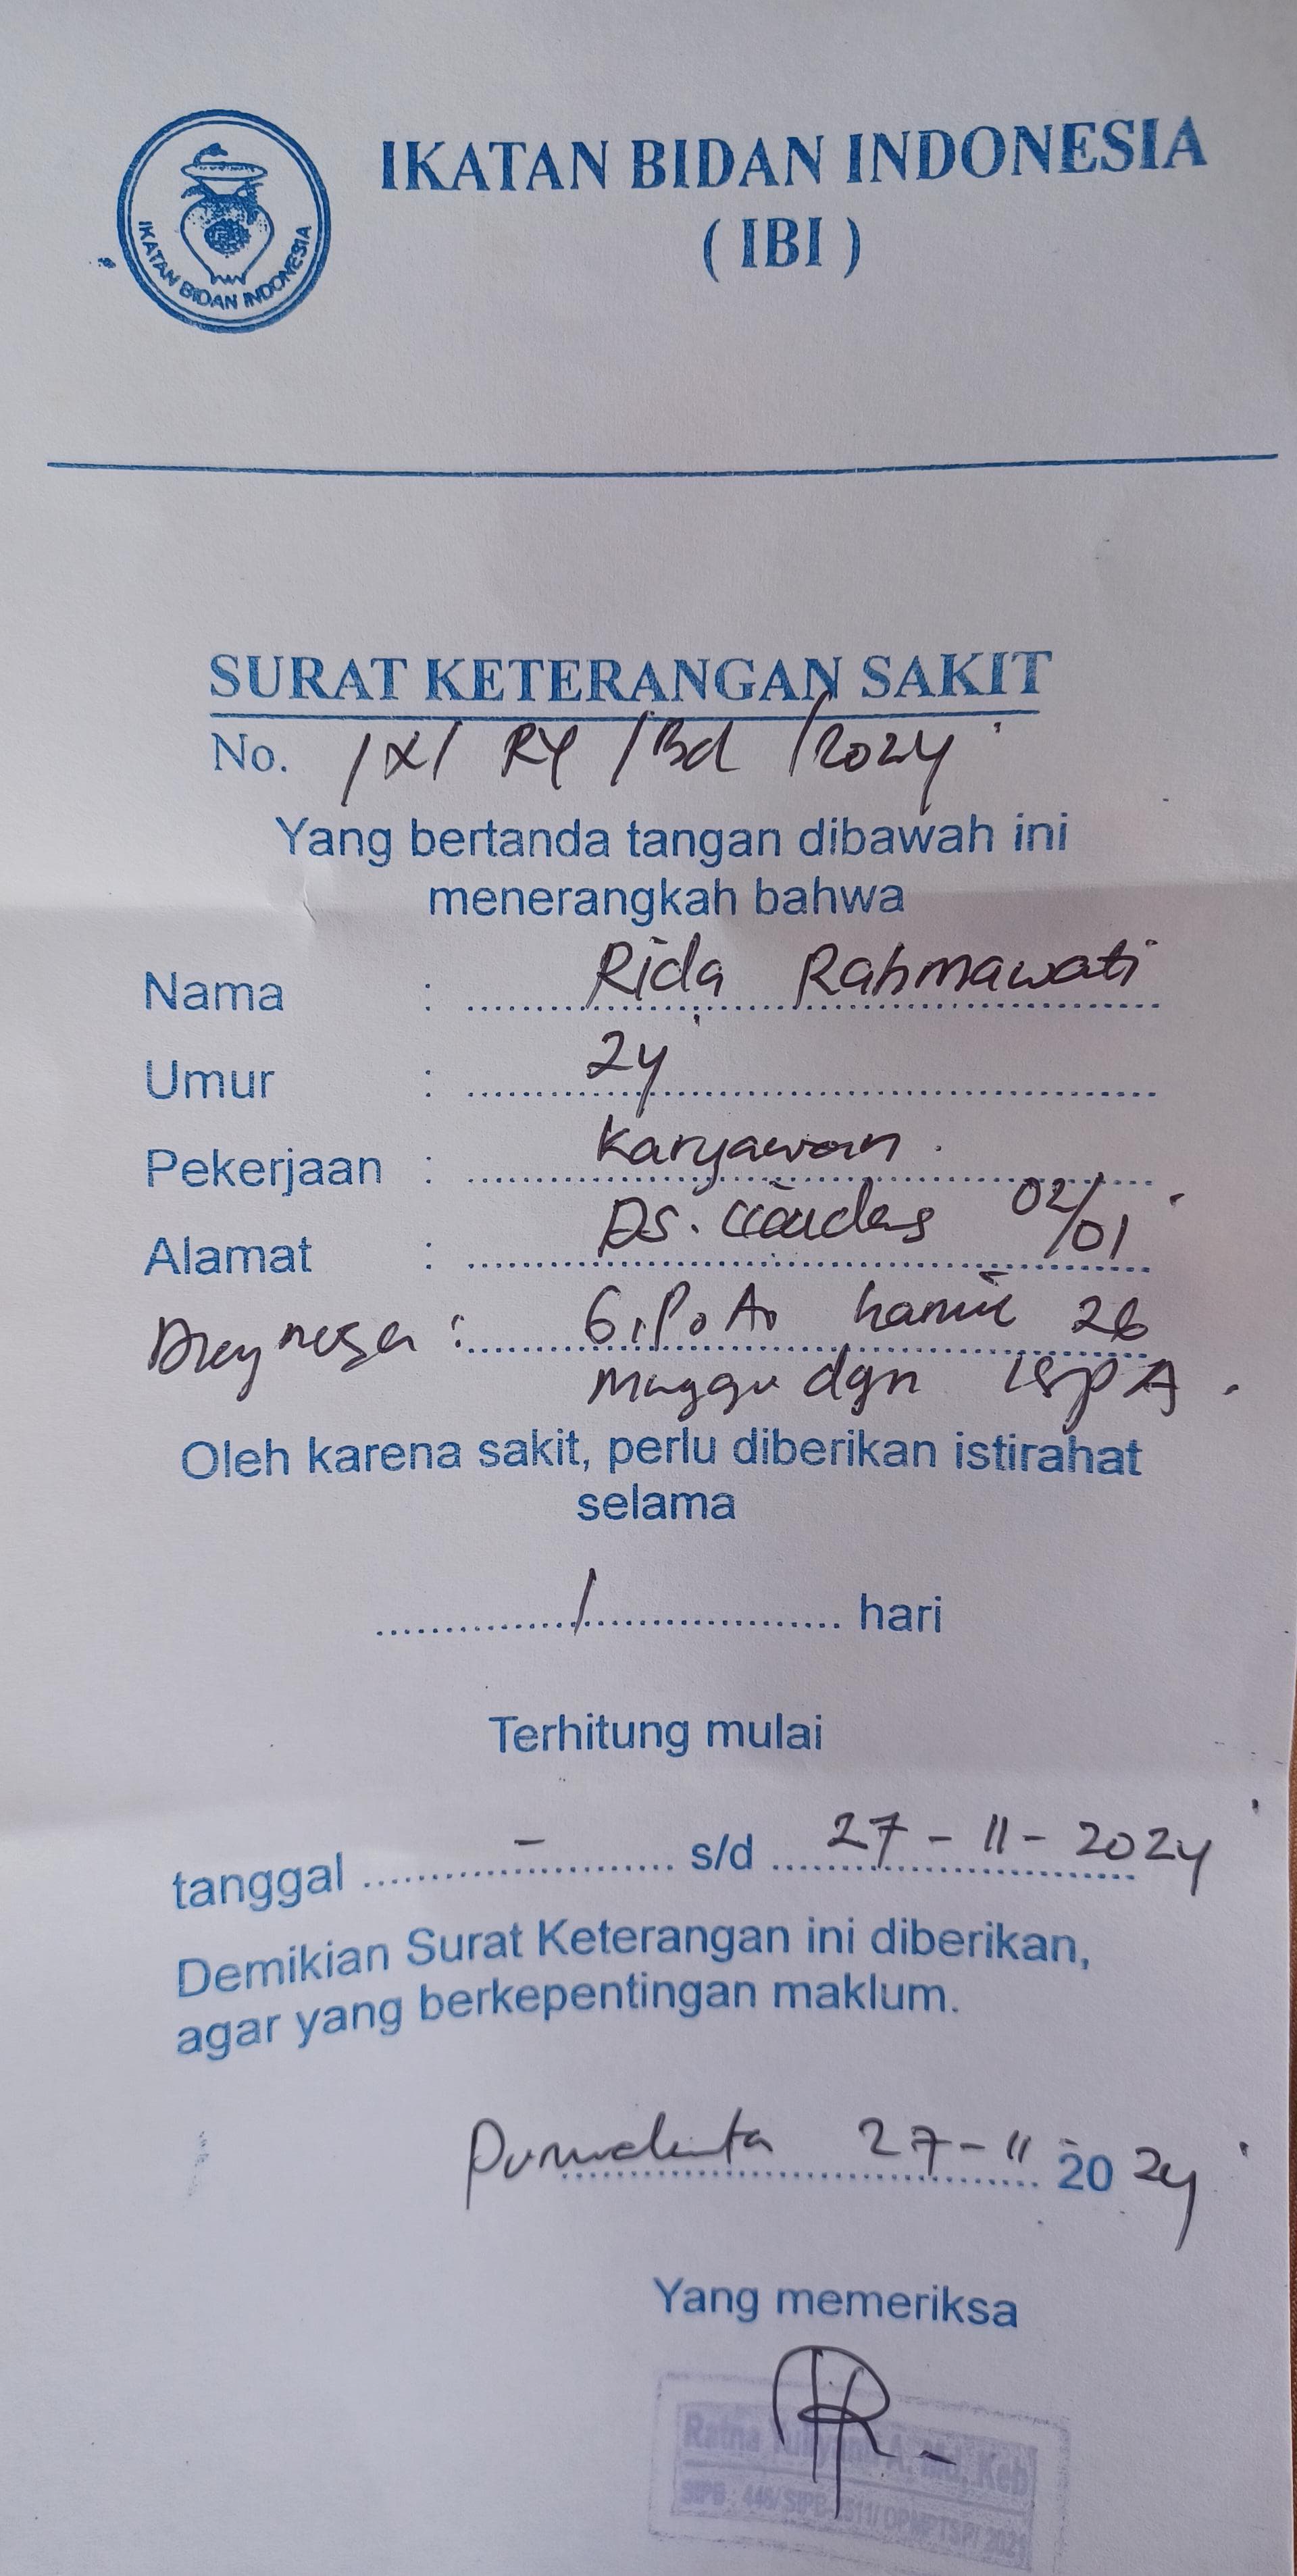 IKATAN BIDAN INDONESIA
IKATAN BIDAN INDONESIA
( IBI )
SURAT KETERANGAN SAKIT
No. /X/ RY /Bd /2024
Yang bertanda tangan dibawah ini
menerangkah bahwa
Nama : Rida Rahmawati
Umur : 24
Pekerjaan : Karyawan.
Alamat : Ds. 02/01
: G1P0A0 hamil 26
dgn ISPA.
Oleh karena sakit, perlu diberikan istirahat
selama
1 hari
Terhitung mulai
tanggal - s/d 27-11-2024
Demikian Surat Keterangan ini diberikan,
agar yang berkepentingan maklum.
Purwakarta 27-11 2024
Yang memeriksa
Ratna A. Md, Keb